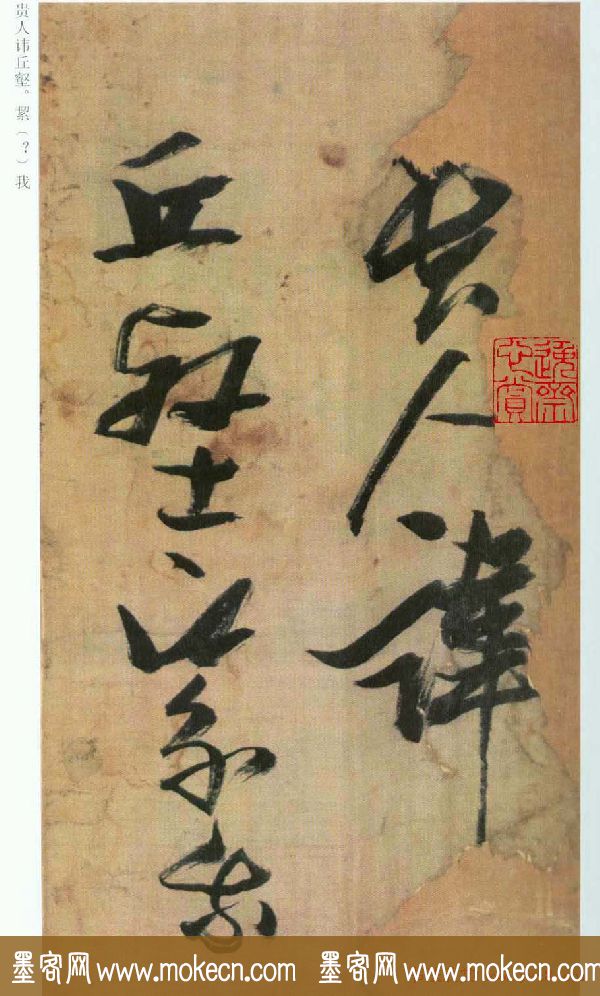 貴人諱
丘壑我
贵人讳丘壑。（？）我
墨客网 www.mokecn.com 墨客网 www.mokecn.com